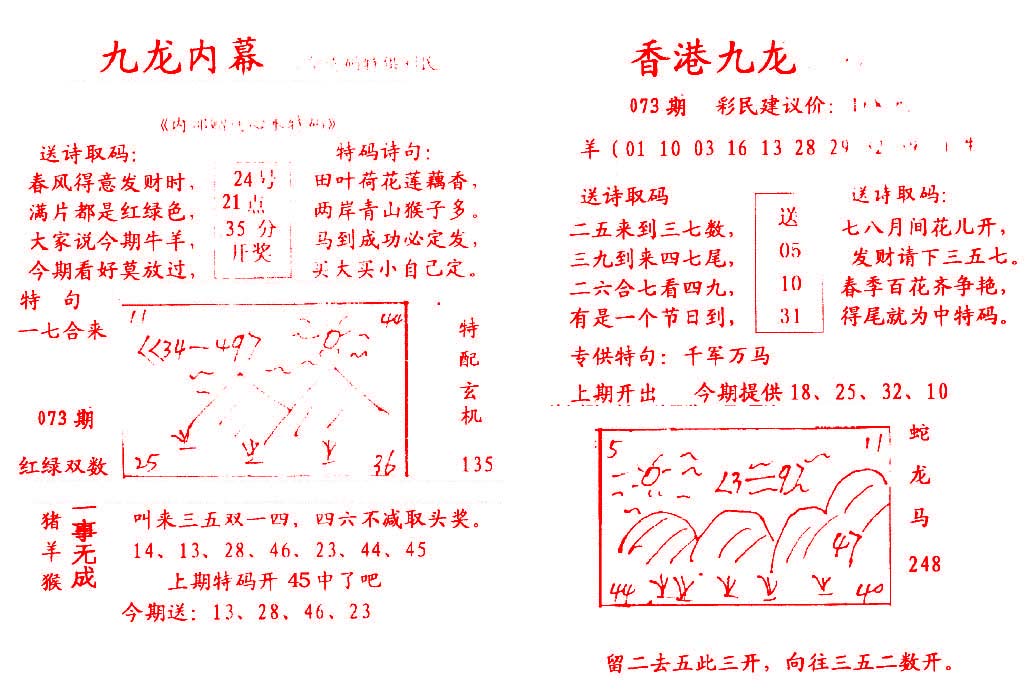 九龙内幕
送诗取码：
春风得意发财时，
满片都是红绿色，
大家说今期牛羊，
今期看好莫放过，
24号
21点
35 分
开奖
特码诗句：
田叶荷花莲藕香，
两岸青山猴子多。
马到成功必定发，
买大买小自己定。
特 句
一七合来
073期
红绿双数
11
44
25
36
特配玄机
135
猪羊猴
一事无成
叫来三五双一四，四六不减取头奖。
14、13、28、46、23、44、45
上期特码开 45中了吧
今期送：13、28、46、23
香港九龙
073期 彩民建议价：
羊（01 10 03 16 13 28 29
送诗取码
二五来到三七数，
三九到来四七尾，
二六合七看四九，
有是一个节日到，
送
05
10
31
送诗取码：
七八月间花儿开，
发财请下三五七。
春季百花齐争艳，
得尾就为中特码。
专供特句：千军万马
上期开出 今期提供18、25、32、10
5
11
47
44
40
蛇
龙
马
248
留二去五此三开，向往三五二数开。